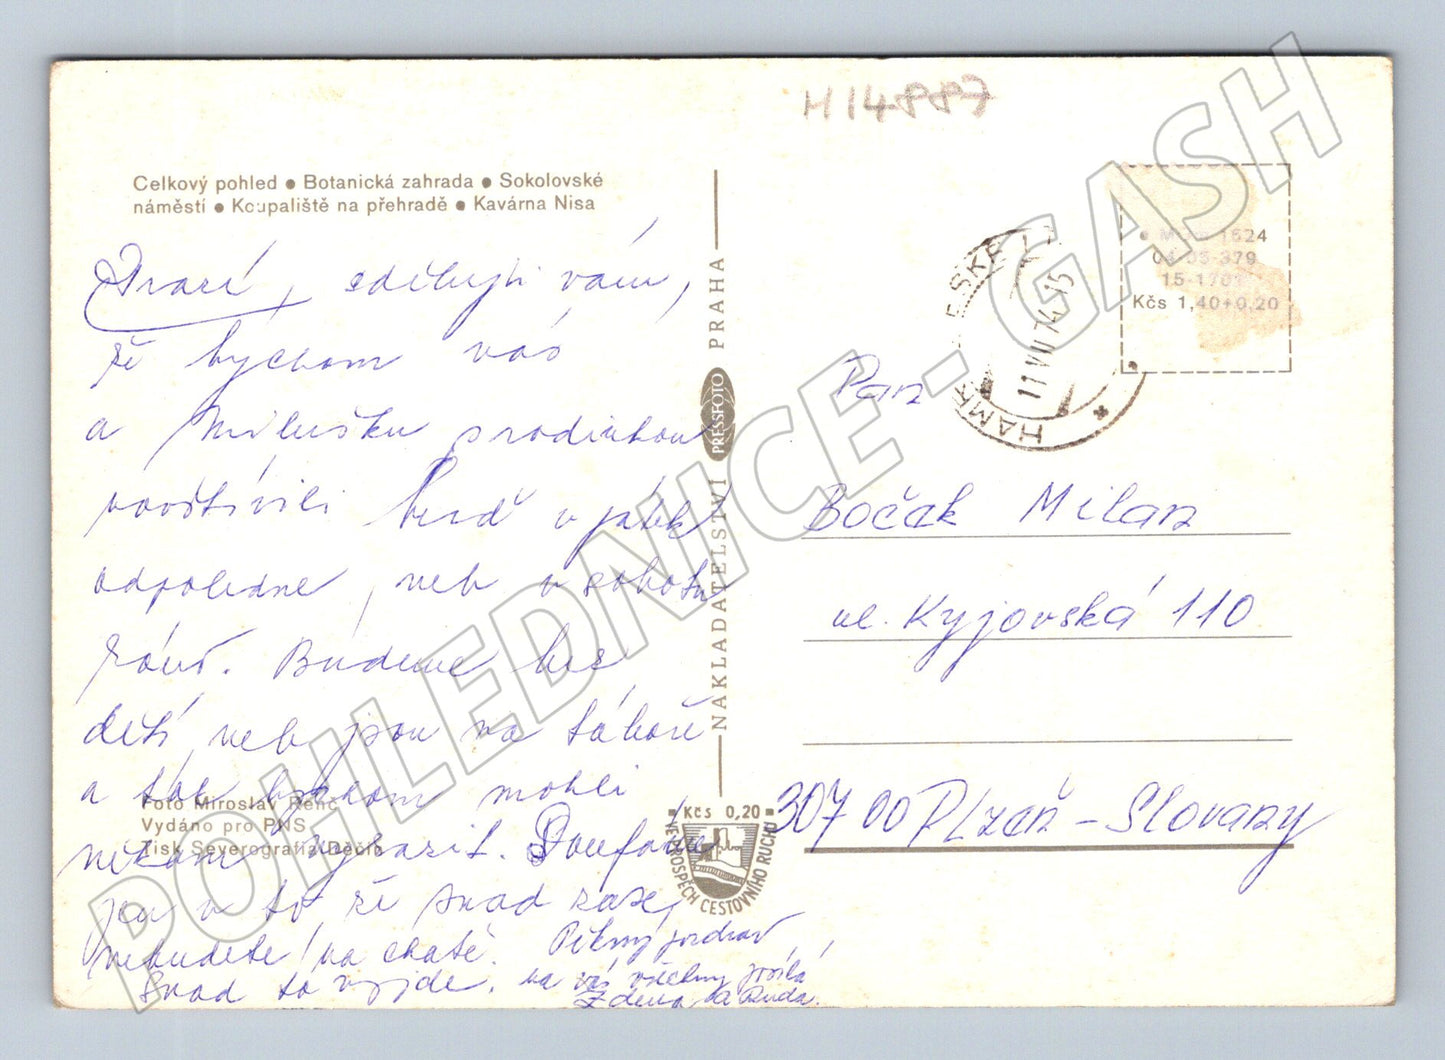 H14887
Celkový pohled ● Botanická zahrada ● Sokolovské
náměstí ● Koupaliště na přehradě ● Kavárna Nisa
Drazí, sděluji vám,
že bychom vás
a Milušku s rodinkou
navštívili buď v pátek
odpoledne, neb v sobotu
ráno. Budeme bez
dětí, neb jsou na táboře
a tak bychom mohli
někam vyrazit. Doufáme
jen v to že snad zase
nebudete na chatě.
Snad to vyjde.
Pěkný pozdrav
na vás všechny posílá
Zdena a Ruda.
Foto Miroslav Renč
Vydáno pro PNS
Tisk Severografia Děčín
NAKLADATELSTVÍ PRESSFOTO PRAHA
Kčs 0,20
VE PROSPĚCH CESTOVNÍHO RUCHU
1524
04-05-379
Kčs 1,40+0,20
HAMR
11 VII 74-15
Pan
Bočak Milan
ul. Kyjovská 110
307 00 Plzeň - Slovany
POHLEDNICE - GASH